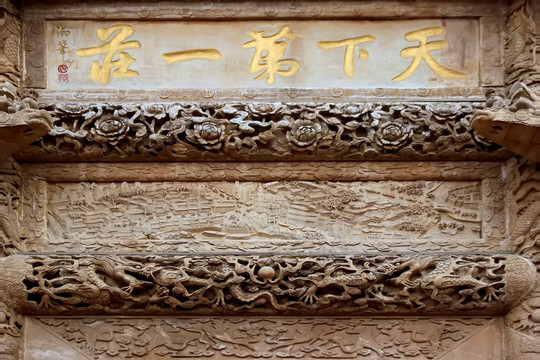 天下第一庄